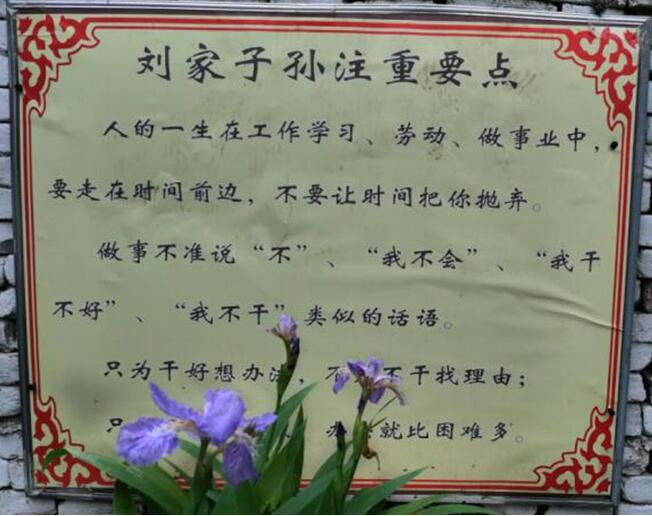 刘家子孙注重要点
人的一生在工作学习、劳动、做事业中，
要走在时间前边，不要让时间把你抛弃。
做事不准说“不”、“我不会”、“我干
不好”、“我不干”类似的话语。
只为干好想办法，不不干找理由；
只办就比困难多。